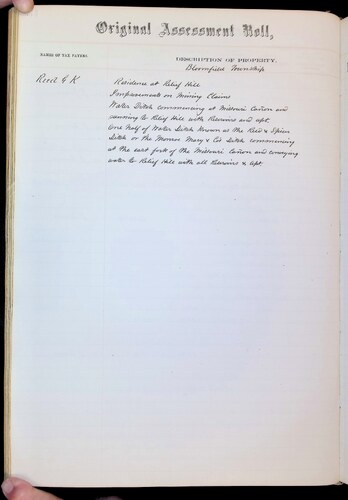 Original Assessment Roll,
NAMES OF TAX PAYERS.
DESCRIPTION OF PROPERTY.
Bloomfield Township
Reed G K
Residence at Relief Hill
Improvements on Mining Claims
Water Ditch commencing at Missouri Cañon and
running to Relief Hill with Reservoirs and apt.
One half of Water Ditch Known as the Reed &
Ditch or the Mary & Co Ditch commencing
at the east fork of the Missouri Cañon and conveying
water to Relief Hill with all Reservoirs & apt